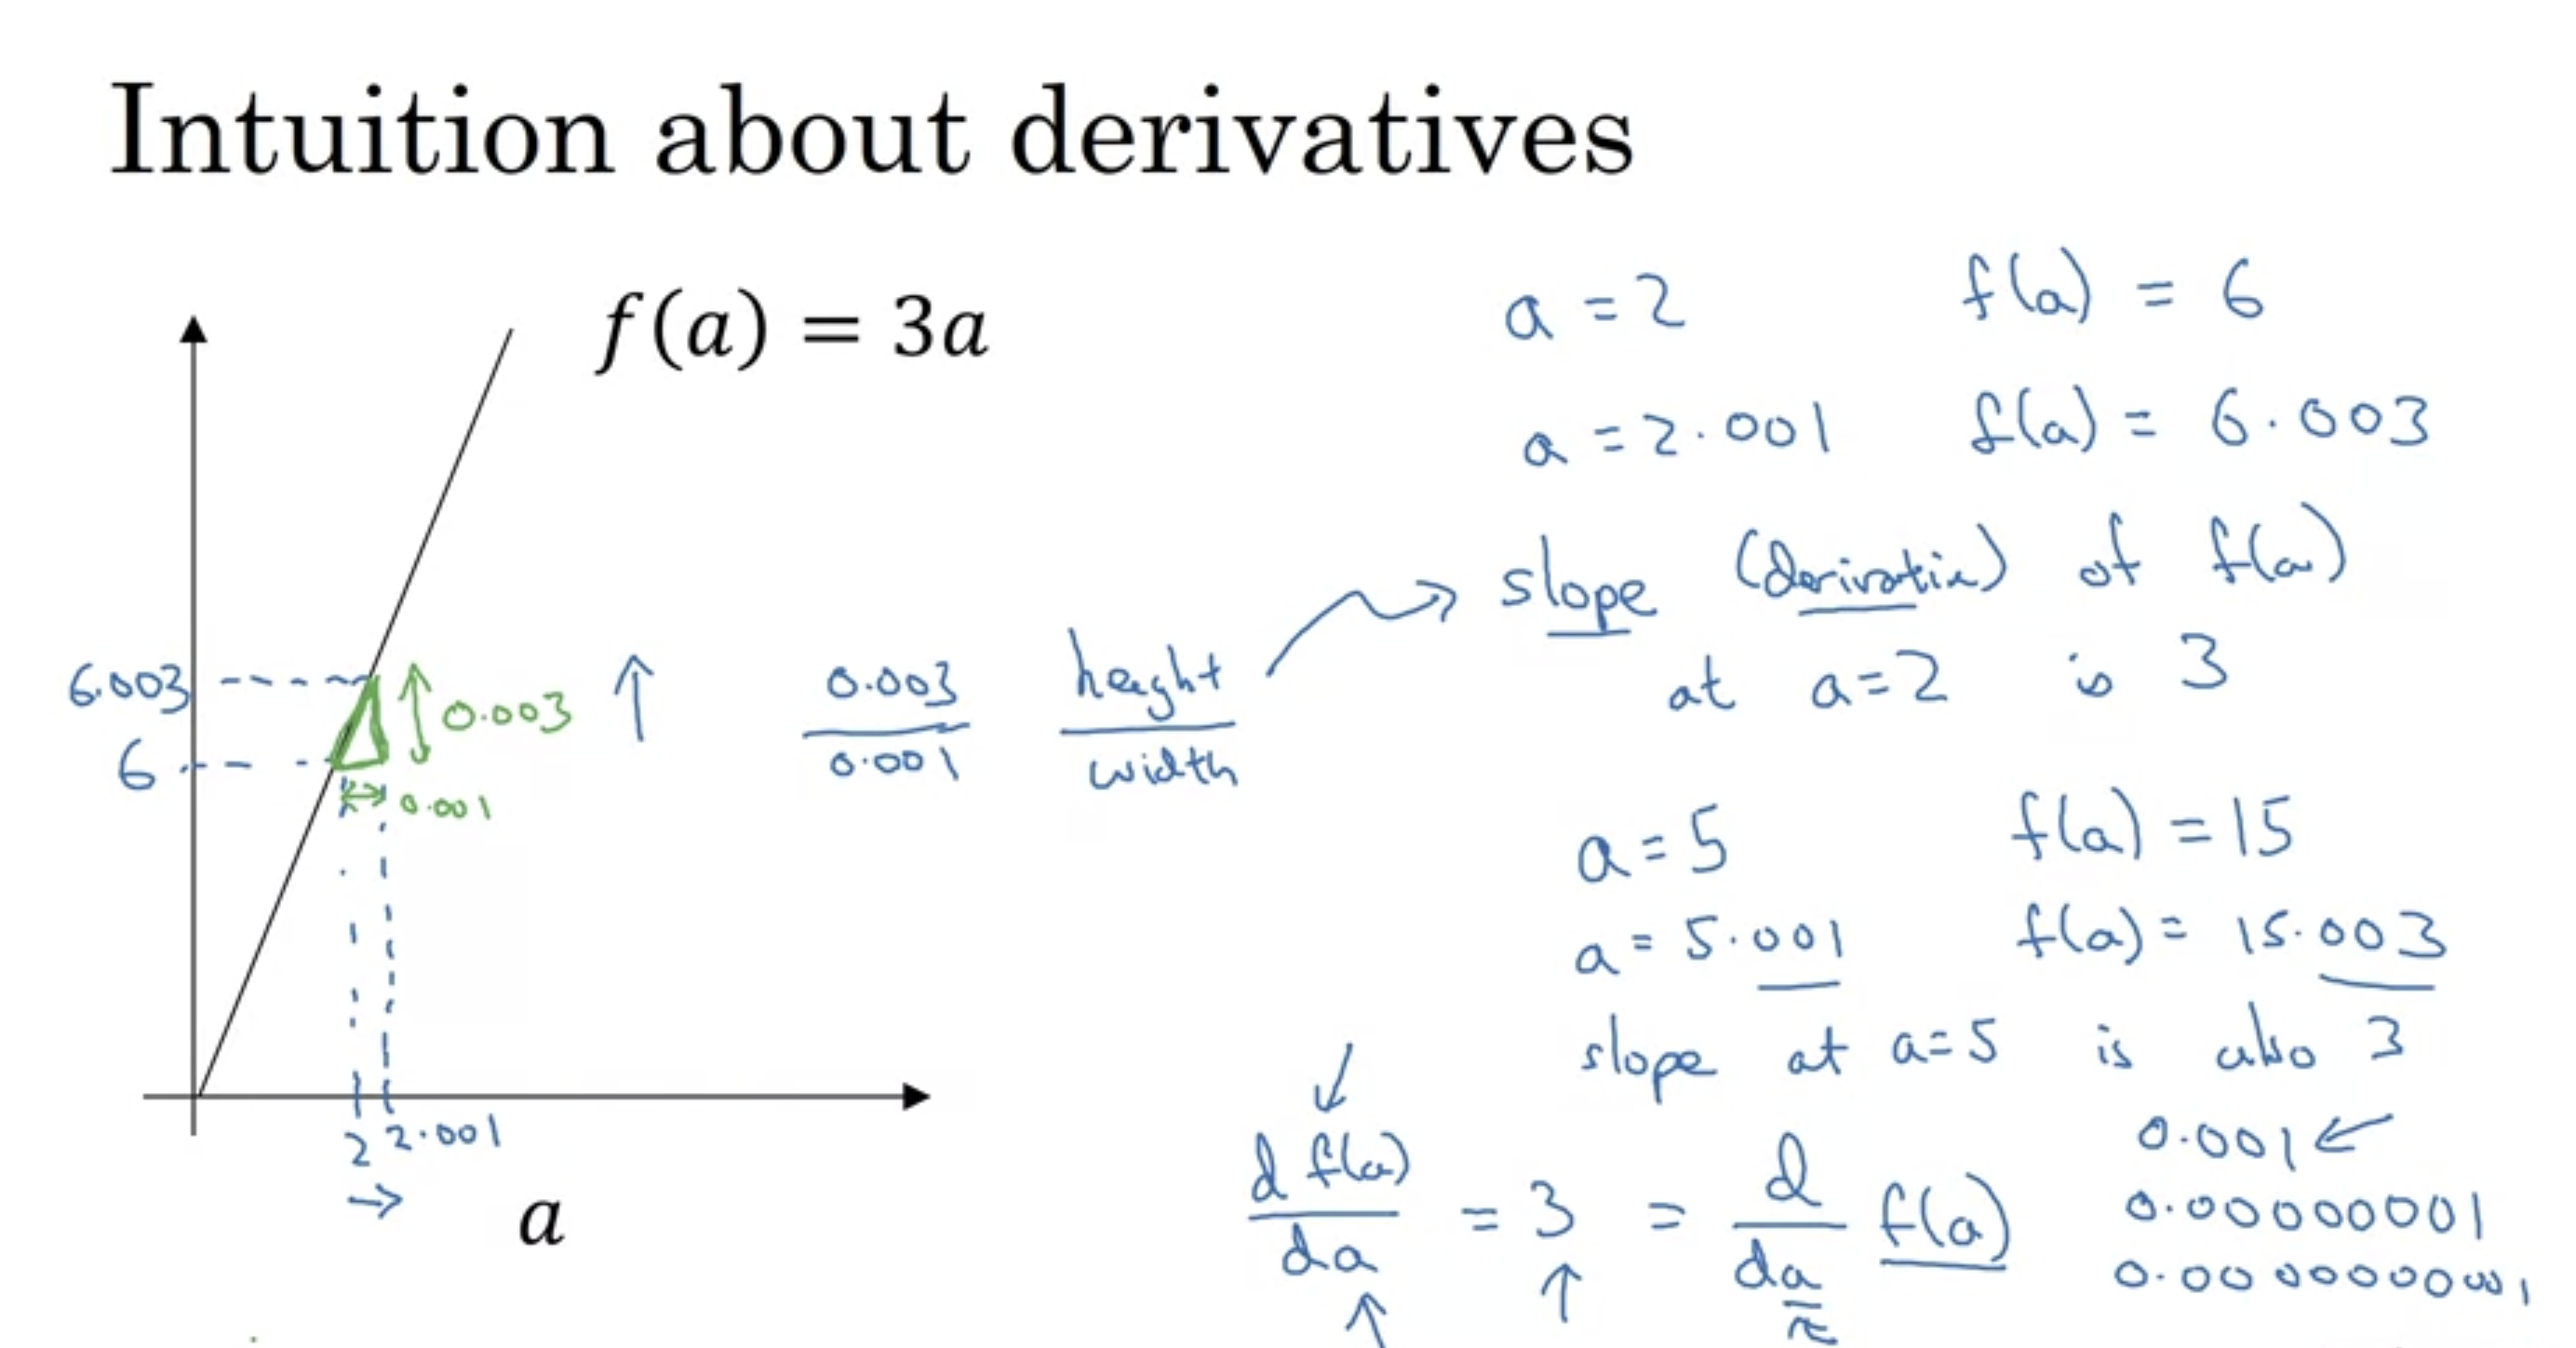 Intuition about derivatives
f(a) = 3a
6.003
6
0.003
0.001
2 2.001
a
0.003 / 0.001
height / width
a = 2 f(a) = 6
a = 2.001 f(a) = 6.003
slope (derivative) of f(a)
at a=2 is 3
a = 5 f(a) = 15
a = 5.001 f(a) = 15.003
slope at a=5 is also 3
d f(a) / da = 3 = d / da f(a)
0.001
0.00000001
0.0000000001